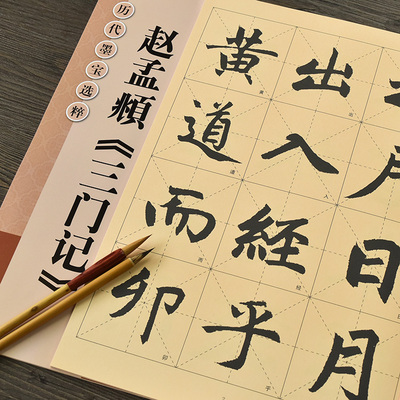 历代墨宝选粹
赵孟頫《三门记》
日月
出入經乎
黄道而卯